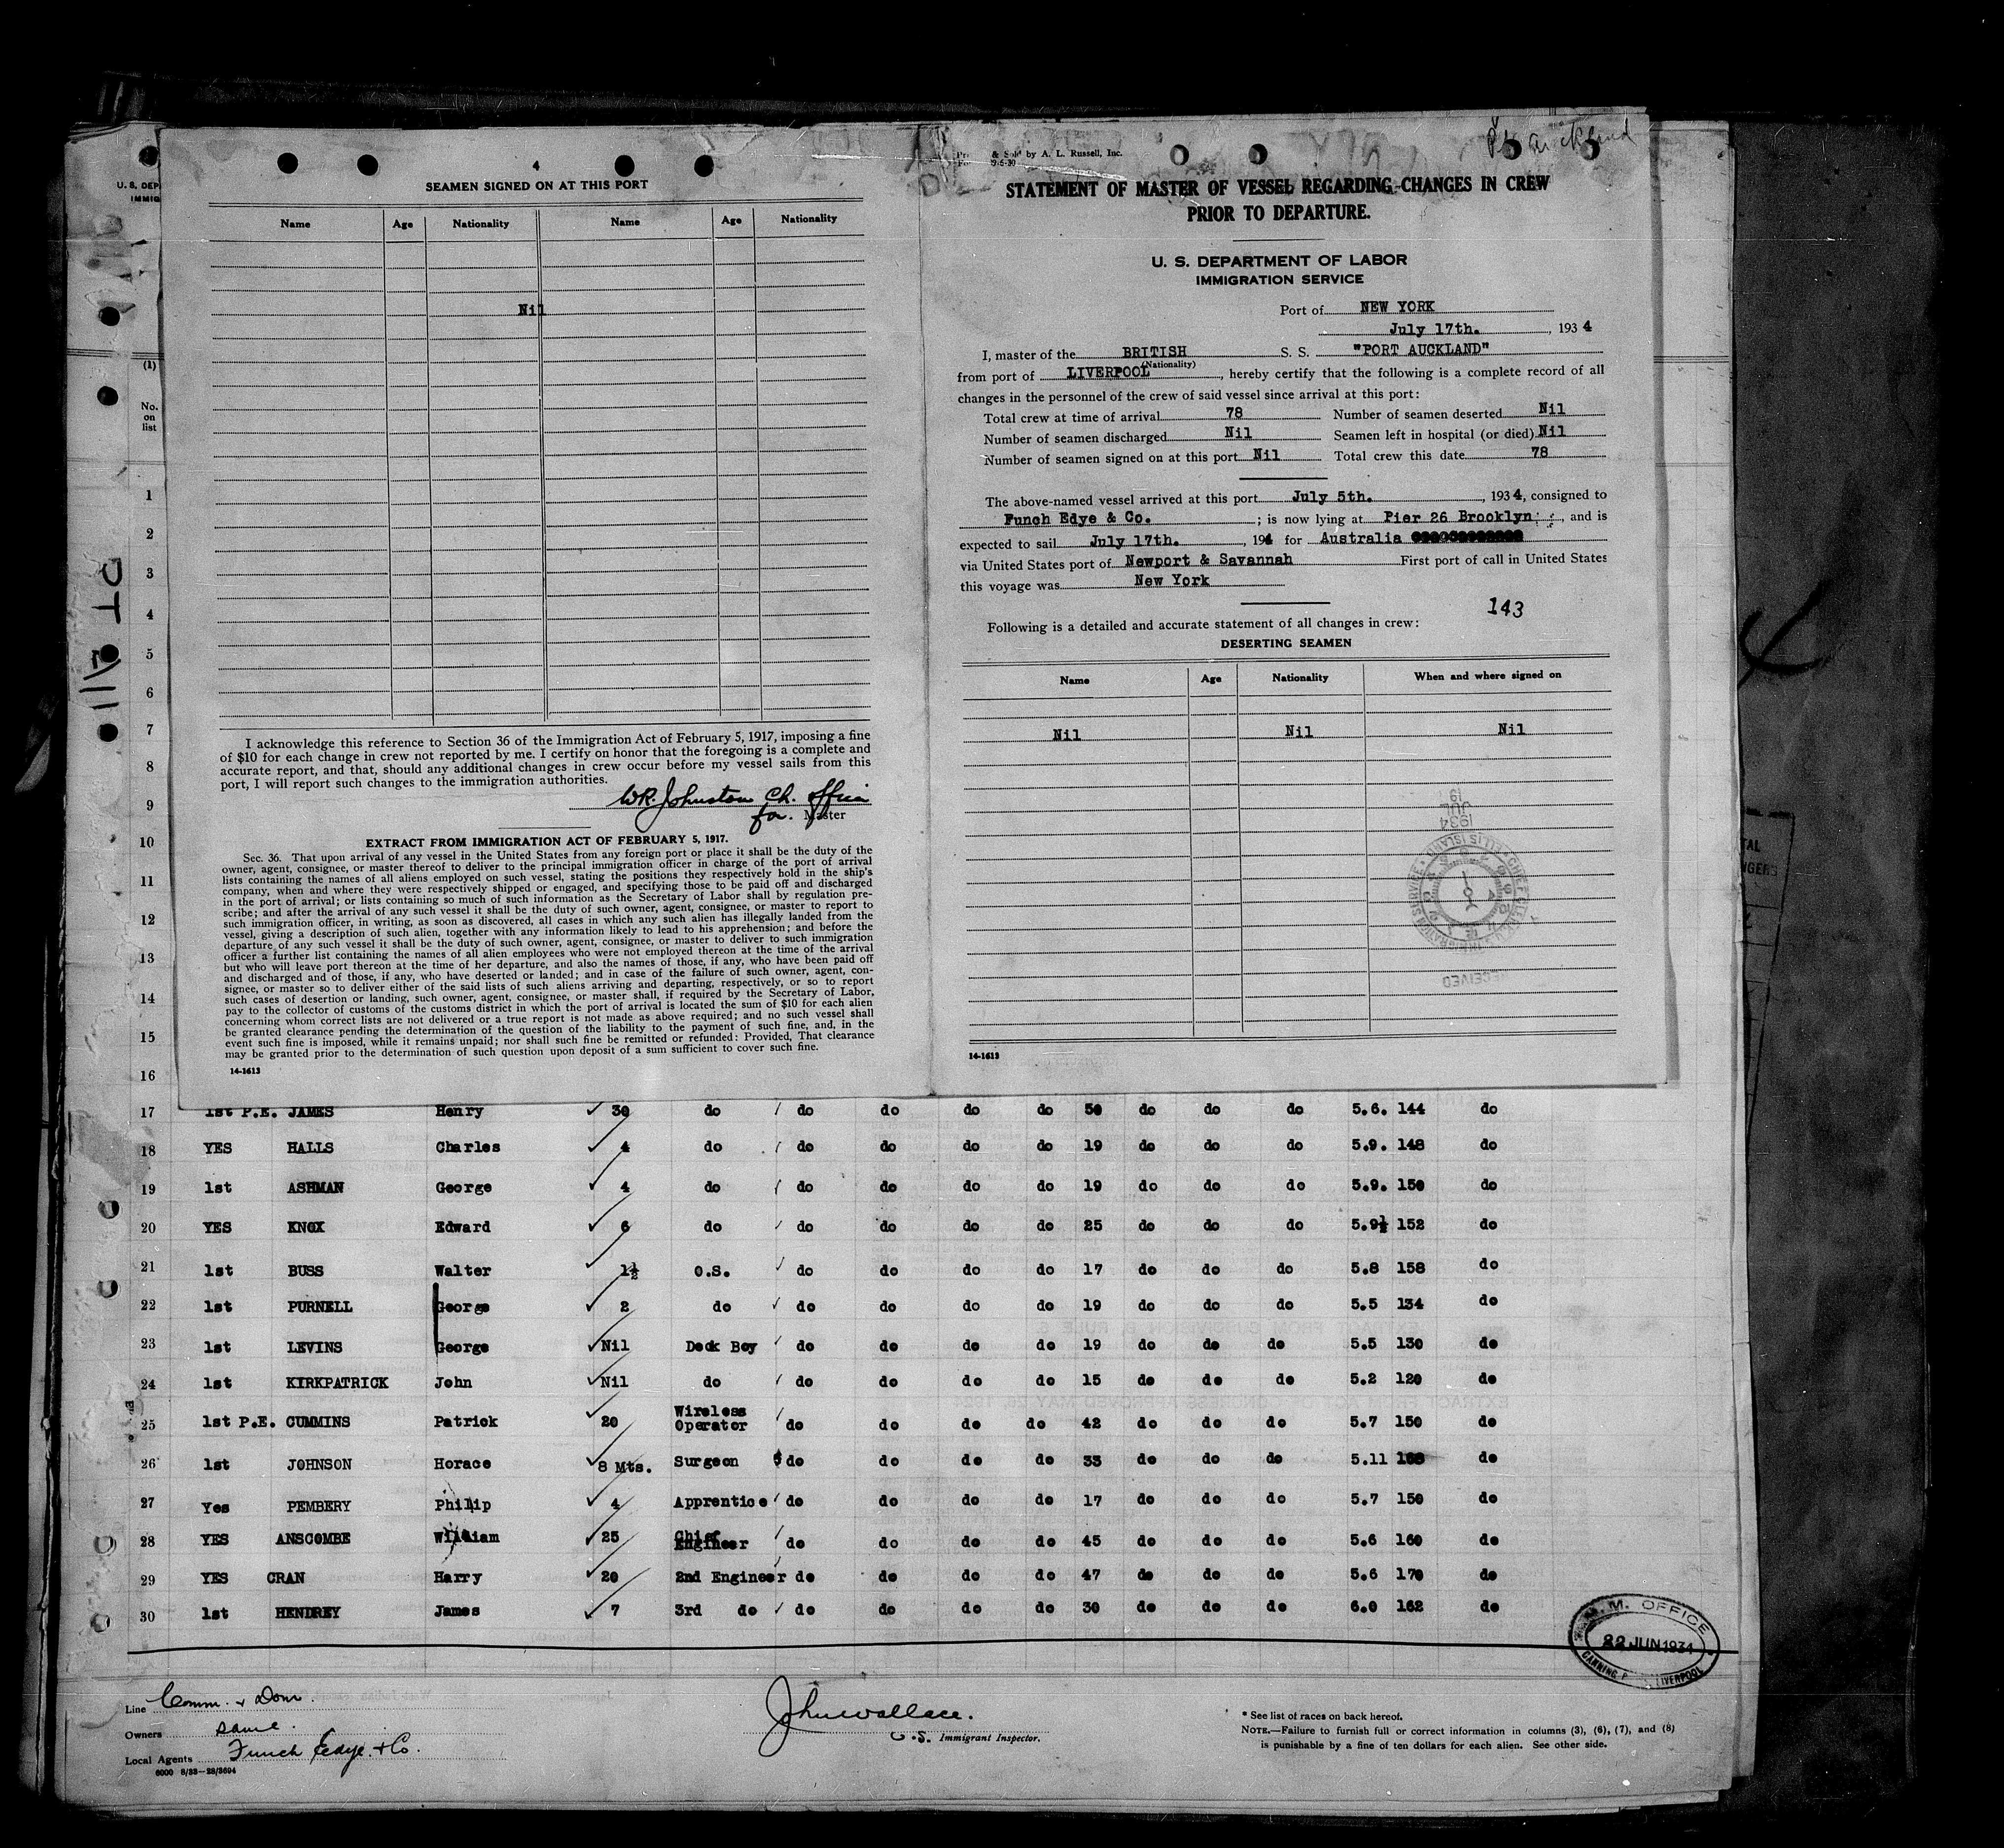 4
SEAMEN SIGNED ON AT THIS PORT
Name Age Nationality Name Age Nationality
Nil
I acknowledge this reference to Section 36 of the Immigration Act of February 5, 1917, imposing a fine
of $10 for each change in crew not reported by me. I certify on honor that the foregoing is a complete and
accurate report, and that, should any additional changes in crew occur before my vessel sails from this
port, I will report such changes to the immigration authorities.
W.R. Johnston Ch. Officer
for. Master
EXTRACT FROM IMMIGRATION ACT OF FEBRUARY 5, 1917.
Sec. 36. That upon arrival of any vessel in the United States from any foreign port or place it shall be the duty of the
owner, agent, consignee, or master thereof to deliver to the principal immigration officer in charge of the port of arrival
lists containing the names of all aliens employed on such vessel, stating the positions they respectively hold in the ship's
company, when and where they were respectively shipped or engaged, and specifying those to be paid off and discharged
in the port of arrival; or lists containing so much of such information as the Secretary of Labor shall by regulation pre-
scribe; and after the arrival of any such vessel it shall be the duty of such owner, agent, consignee, or master to report to
such immigration officer, in writing, as soon as discovered, all cases in which any such alien has illegally landed from the
vessel, giving a description of such alien, together with any information likely to lead to his apprehension; and before the
departure of any such vessel it shall be the duty of such owner, agent, consignee, or master to deliver to such immigration
officer a further list containing the names of all alien employees who were not employed thereon at the time of the arrival
but who will leave port thereon at the time of her departure, and also the names of those, if any, who have been paid off
and discharged and of those, if any, who have deserted or landed; and in case of the failure of such owner, agent, con-
signee, or master so to deliver either of the said lists of such aliens arriving and departing, respectively, or so to report
such cases of desertion or landing, such owner, agent, consignee, or master shall, if required by the Secretary of Labor,
pay to the collector of customs of the customs district in which the port of arrival is located the sum of $10 for each alien
concerning whom correct lists are not delivered or a true report is not made as above required; and no such vessel shall
be granted clearance pending the determination of the question of the liability to the payment of such fine, and, in the
event such fine is imposed, while it remains unpaid; nor shall such fine be remitted or refunded: Provided, That clearance
may be granted prior to the determination of such question upon deposit of a sum sufficient to cover such fine.
14-1613
& Sold by A. L. Russell, Inc.
Pt Auckland
STATEMENT OF MASTER OF VESSEL REGARDING CHANGES IN CREW
PRIOR TO DEPARTURE.
U. S. DEPARTMENT OF LABOR
IMMIGRATION SERVICE
Port of NEW YORK
July 17th. , 1934
I, master of the BRITISH S. S. "PORT AUCKLAND"
(Nationality)
from port of LIVERPOOL , hereby certify that the following is a complete record of all
changes in the personnel of the crew of said vessel since arrival at this port:
Total crew at time of arrival 78 Number of seamen deserted Nil
Number of seamen discharged Nil Seamen left in hospital (or died) Nil
Number of seamen signed on at this port Nil Total crew this date 78
The above-named vessel arrived at this port July 5th. , 1934, consigned to
Funch Edye & Co. ; is now lying at Pier 26 Brooklyn , and is
expected to sail July 17th. , 194 for Australia
via United States port of Newport & Savannah First port of call in United States
this voyage was New York
143
Following is a detailed and accurate statement of all changes in crew:
DESERTING SEAMEN
Name Age Nationality When and where signed on
Nil Nil Nil
JUL 19
1934
RECEIVED
14-1613
U. S. DEP
IMMIG
(1)
No.
on
list
1
2
3
4
5
6
7
8
9
10
11
12
13
14
15
16
17 1st P.E. JAMES Henry 30 do do do do do 50 do do do 5.6. 144 do
18 YES HALLS Charles 4 do do do do do 19 do do do 5.9. 148 do
19 1st ASHMAN George 4 do do do do do 19 do do do 5.9. 150 do
20 YES KNOX Edward 6 do do do do do 25 do do do 5.9½ 152 do
21 1st BUSS Walter 1½ O.S. do do do do 17 do do do 5.8 158 do
22 1st PURNELL George 2 do do do do do 19 do do do 5.5 134 do
23 1st LEVINS George Nil Deck Boy do do do do 19 do do do 5.5 130 do
24 1st KIRKPATRICK John Nil do do do do do 15 do do do 5.2 120 do
25 1st P.E. CUMMINS Patrick 20 Wireless Operator do do do do 42 do do do 5.7 150 do
26 1st JOHNSON Horace 8 Mts. Surgeon do do do do 33 do do do 5.11 do
27 Yes PEMBERY Philip 4 Apprentice do do do do 17 do do do 5.7 150 do
28 YES ANSCOMBE William 25 Chief Engineer do do do do 45 do do do 5.6 160 do
29 YES CRAN Harry 20 2nd Engineer do do do do 47 do do do 5.6 170 do
30 1st HENDREY James 7 3rd do do do do do 30 do do do 6.0 162 do
M.M. OFFICE
22 JUN 1934
CANNING P LIVERPOOL
Line Comm. & Dom.
Owners same.
Local Agents Funch Edye. & Co.
6000 8/33—28/3694
John Wallace.
U.S. Immigrant Inspector.
* See list of races on back hereof.
NOTE.—Failure to furnish full or correct information in columns (3), (6), (7), and (8)
is punishable by a fine of ten dollars for each alien. See other side.